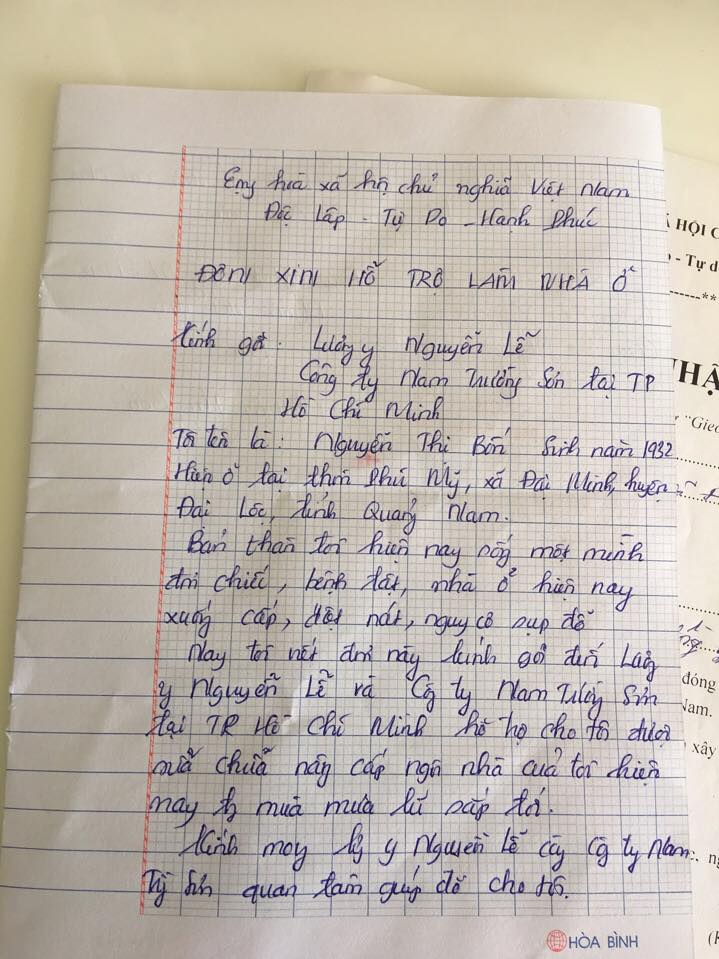 Cộng hoà xã hội chủ nghĩa Việt Nam
Độc Lập - Tự Do - Hạnh Phúc
ĐƠN XIN HỖ TRỢ LÀM NHÀ Ở
Kính gởi: Lương y Nguyễn Lễ
Công ty Nam Trường Sơn tại TP
Hồ Chí Minh
Tôi tên là: Nguyễn Thị Bốn Sinh năm 1932
Hiện ở tại thôn Phú Mỹ, xã Đại Minh, huyện
Đại Lộc, tỉnh Quảng Nam.
Bản thân tôi hiện nay sống một mình
đơn chiếc, bệnh tật, nhà ở hiện nay
xuống cấp, dột nát, nguy cơ sụp đổ
Nay tôi viết đơn này kính gởi đến Lương
y Nguyễn Lễ và Công ty Nam Trường Sơn
tại TP Hồ Chí Minh hỗ trợ cho tôi được
sửa chữa nâng cấp ngôi nhà của tôi hiện
nay mùa mưa lũ sắp tới.
Kính mong y Nguyễn Lễ Công ty Nam
Sơn quan tâm giúp đỡ cho tôi.
HÒA BÌNH
Ã HỘI C
- Tự d
-------**
"Gieo
đóng
Nam.
xây